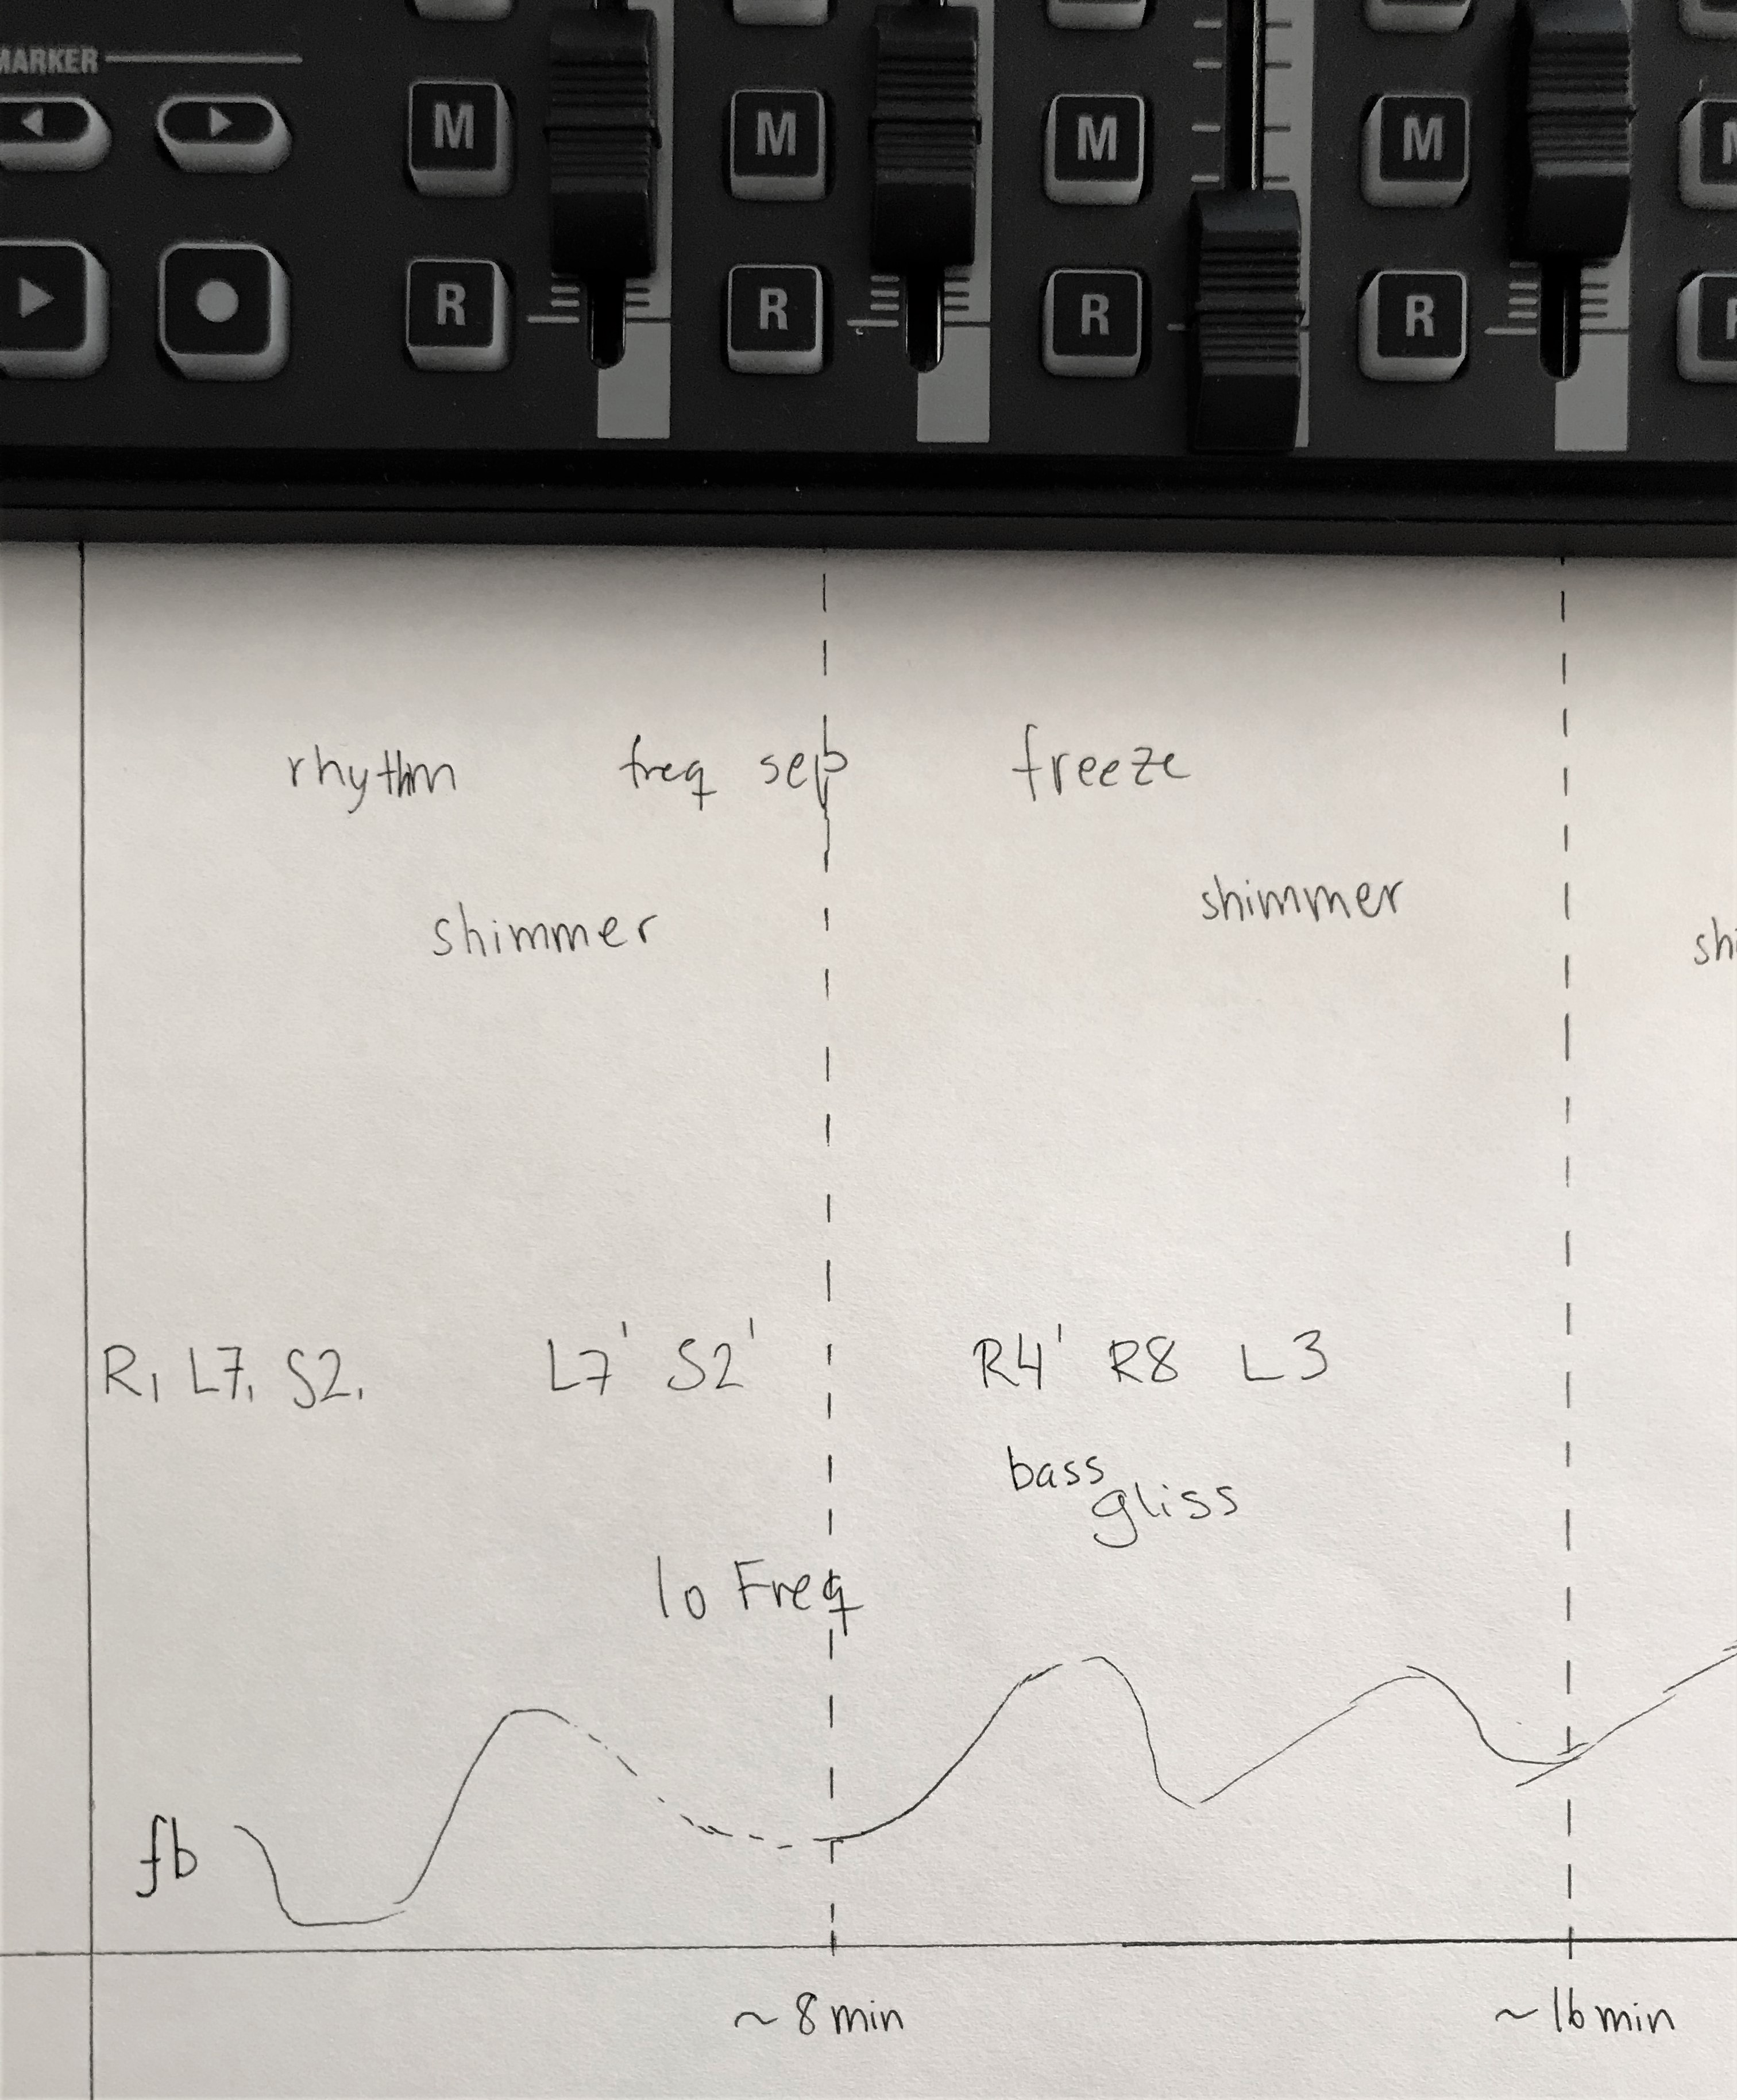 MARKER
M M M M
R R R R
rhythm freq sep freeze
shimmer shimmer
R, L7, S2, L7' S2' R4' R8 L3
bass
gliss
lo Freq
fb
~8min ~16min